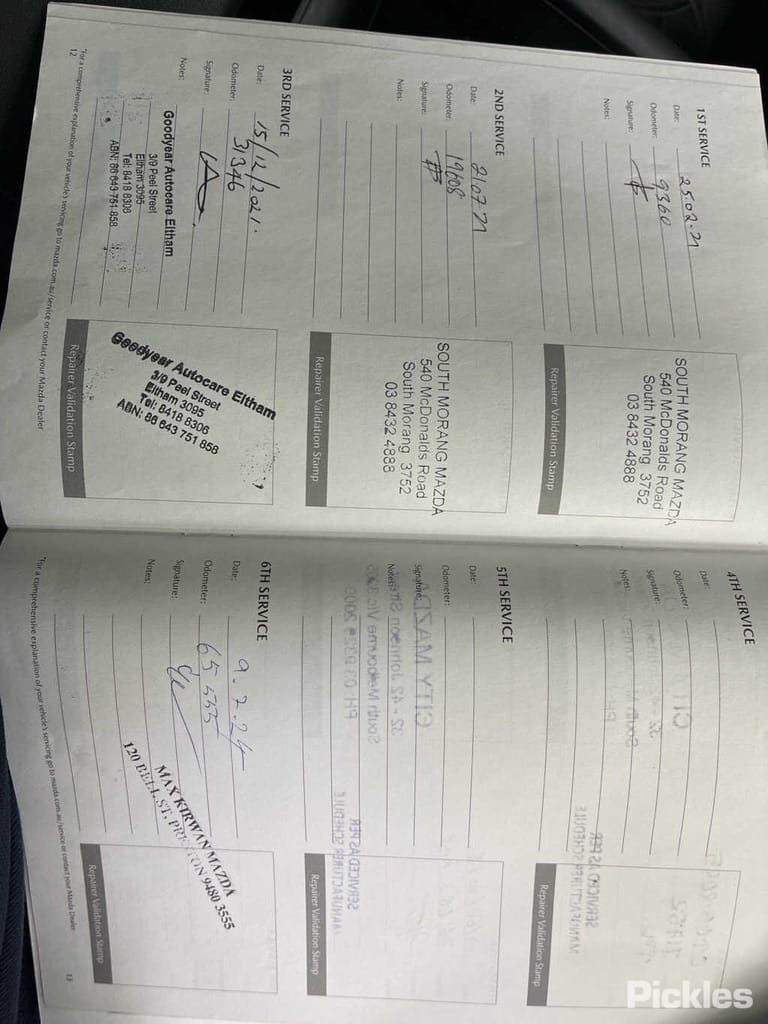 1ST SERVICE
Date: 25.02.21
Odometer: 9360
Signature:
Notes:
SOUTH MORANG MAZDA
540 McDonalds Road
South Morang 3752
03 8432 4888
Repairer Validation Stamp
2ND SERVICE
Date: 21.07.21
Odometer: 19608
Signature:
Notes:
SOUTH MORANG MAZDA
540 McDonalds Road
South Morang 3752
03 8432 4888
Repairer Validation Stamp
3RD SERVICE
Date: 15/12/2021.
Odometer: 31,346
Signature:
Notes:
Goodyear Autocare Eltham
3/9 Peel Street
Eltham 3095
Tel: 8418 8306
ABN: 86 643 751 858
Goodyear Autocare Eltham
3/9 Peel Street
Eltham 3095
Tel: 8418 8306
ABN: 86 643 751 858
Repairer Validation Stamp
*For a comprehensive explanation of your vehicle's servicing go to mazda.com.au/service or contact your Mazda Dealer
12
4TH SERVICE
Date:
Odometer:
Signature:
Notes:
Repairer Validation Stamp
5TH SERVICE
Date:
Odometer:
Signature:
Notes:
Repairer Validation Stamp
6TH SERVICE
Date: 9.2.24
Odometer: 65,535
Signature:
Notes:
MAX KIRWAN MAZDA
120 BELL ST. PRESTON 9480 3555
Repairer Validation Stamp
*For a comprehensive explanation of your vehicle's servicing go to mazda.com.au/service or contact your Mazda Dealer.
13
Pickles